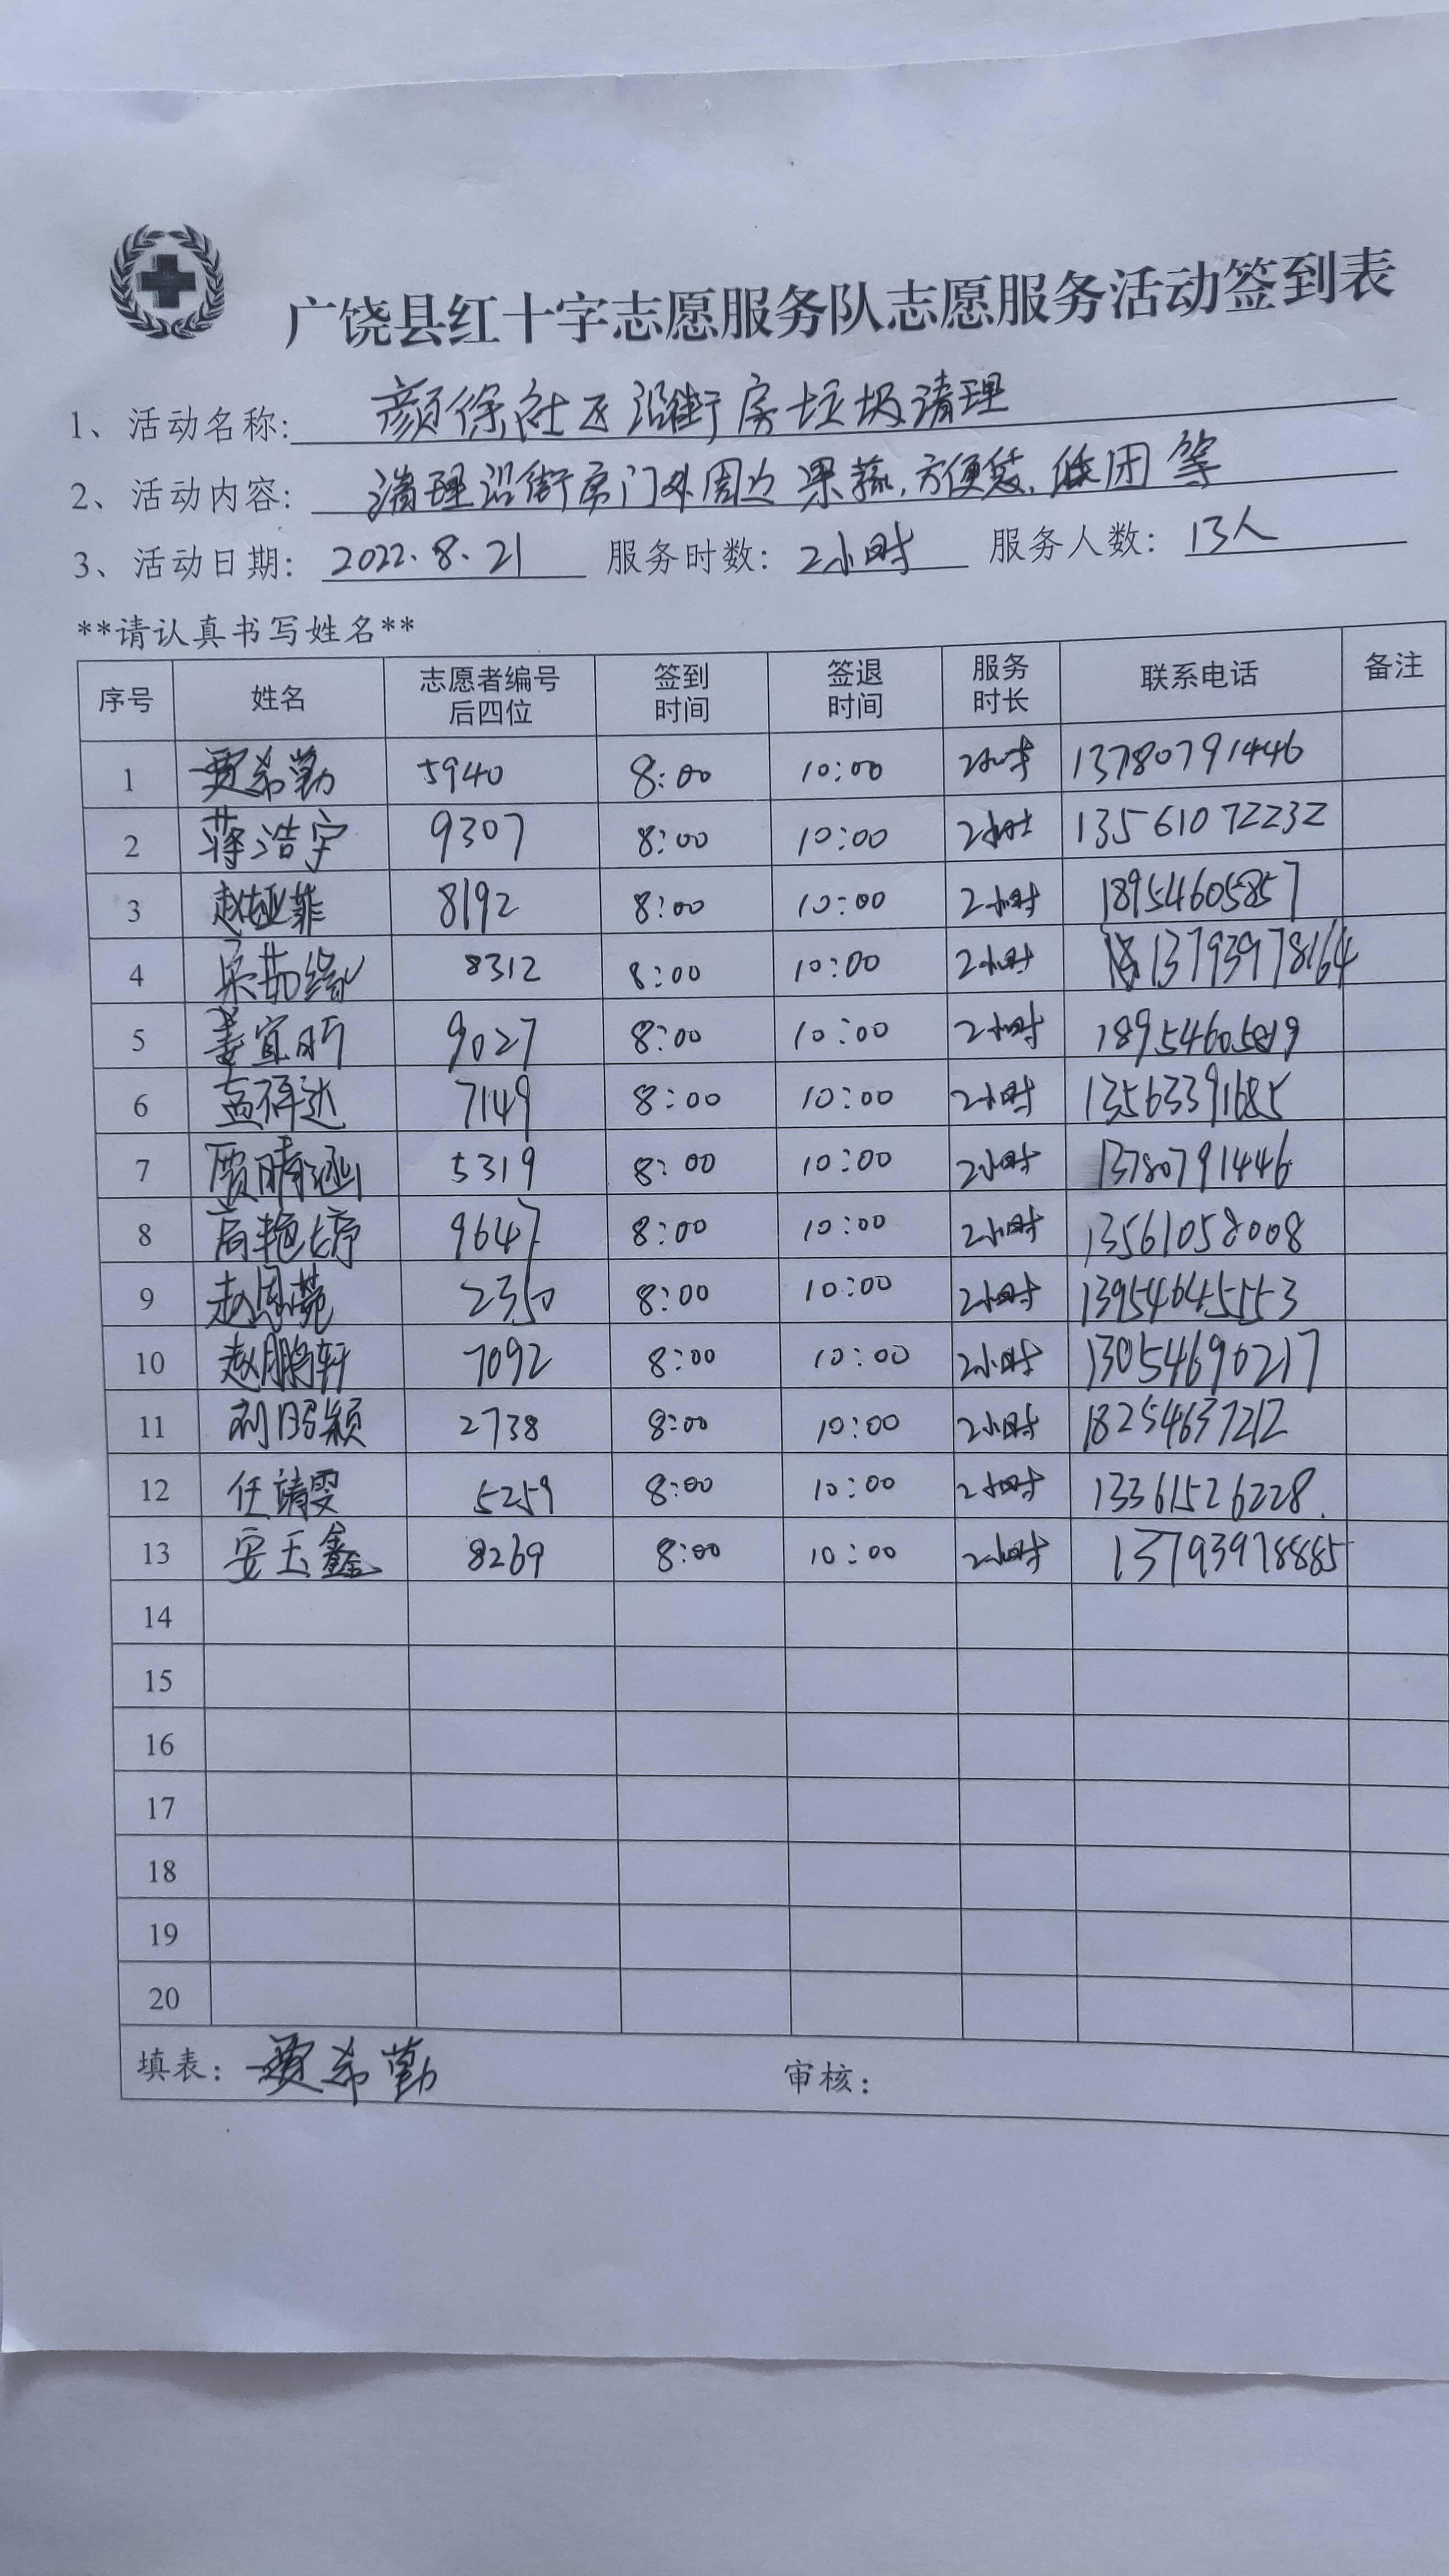 广饶县红十字志愿服务队志愿服务活动签到表
1、活动名称: 颜徐社区沿街房垃圾清理
2、活动内容: 清理沿街房门外周边果蔬,方便袋,纸团等
3、活动日期: 2022.8.21 服务时数: 2小时 服务人数: 13人
**请认真书写姓名**
序号 姓名 志愿者编号后四位 签到时间 签退时间 服务时长 联系电话 备注
1 贾希勤 5940 8:00 10:00 2小时 13780791446
2 蒋浩宇 9307 8:00 10:00 2小时 13561072232
3 赵娅菲 8192 8:00 10:00 2小时 18954605857
4 8312 8:00 10:00 2小时 13793978164
5 姜宜昕 9027 8:00 10:00 2小时
6 孟祥达 7149 8:00 10:00 2小时 13563391685
7 贾晴涵 5319 8:00 10:00 2小时 13780791446
8 高艳婷 9647 8:00 10:00 2小时 13561058008
9 2350 8:00 10:00 2小时 13954645553
10 赵鹏轩 7092 8:00 10:00 2小时 13054690217
11 刘昭颖 2738 8:00 10:00 2小时 18254637212
12 任靖雯 5259 8:00 10:00 2小时 13361526228.
13 安玉鑫 8269 8:00 10:00 2小时 13793978885
14
15
16
17
18
19
20
填表: 贾希勤 审核: